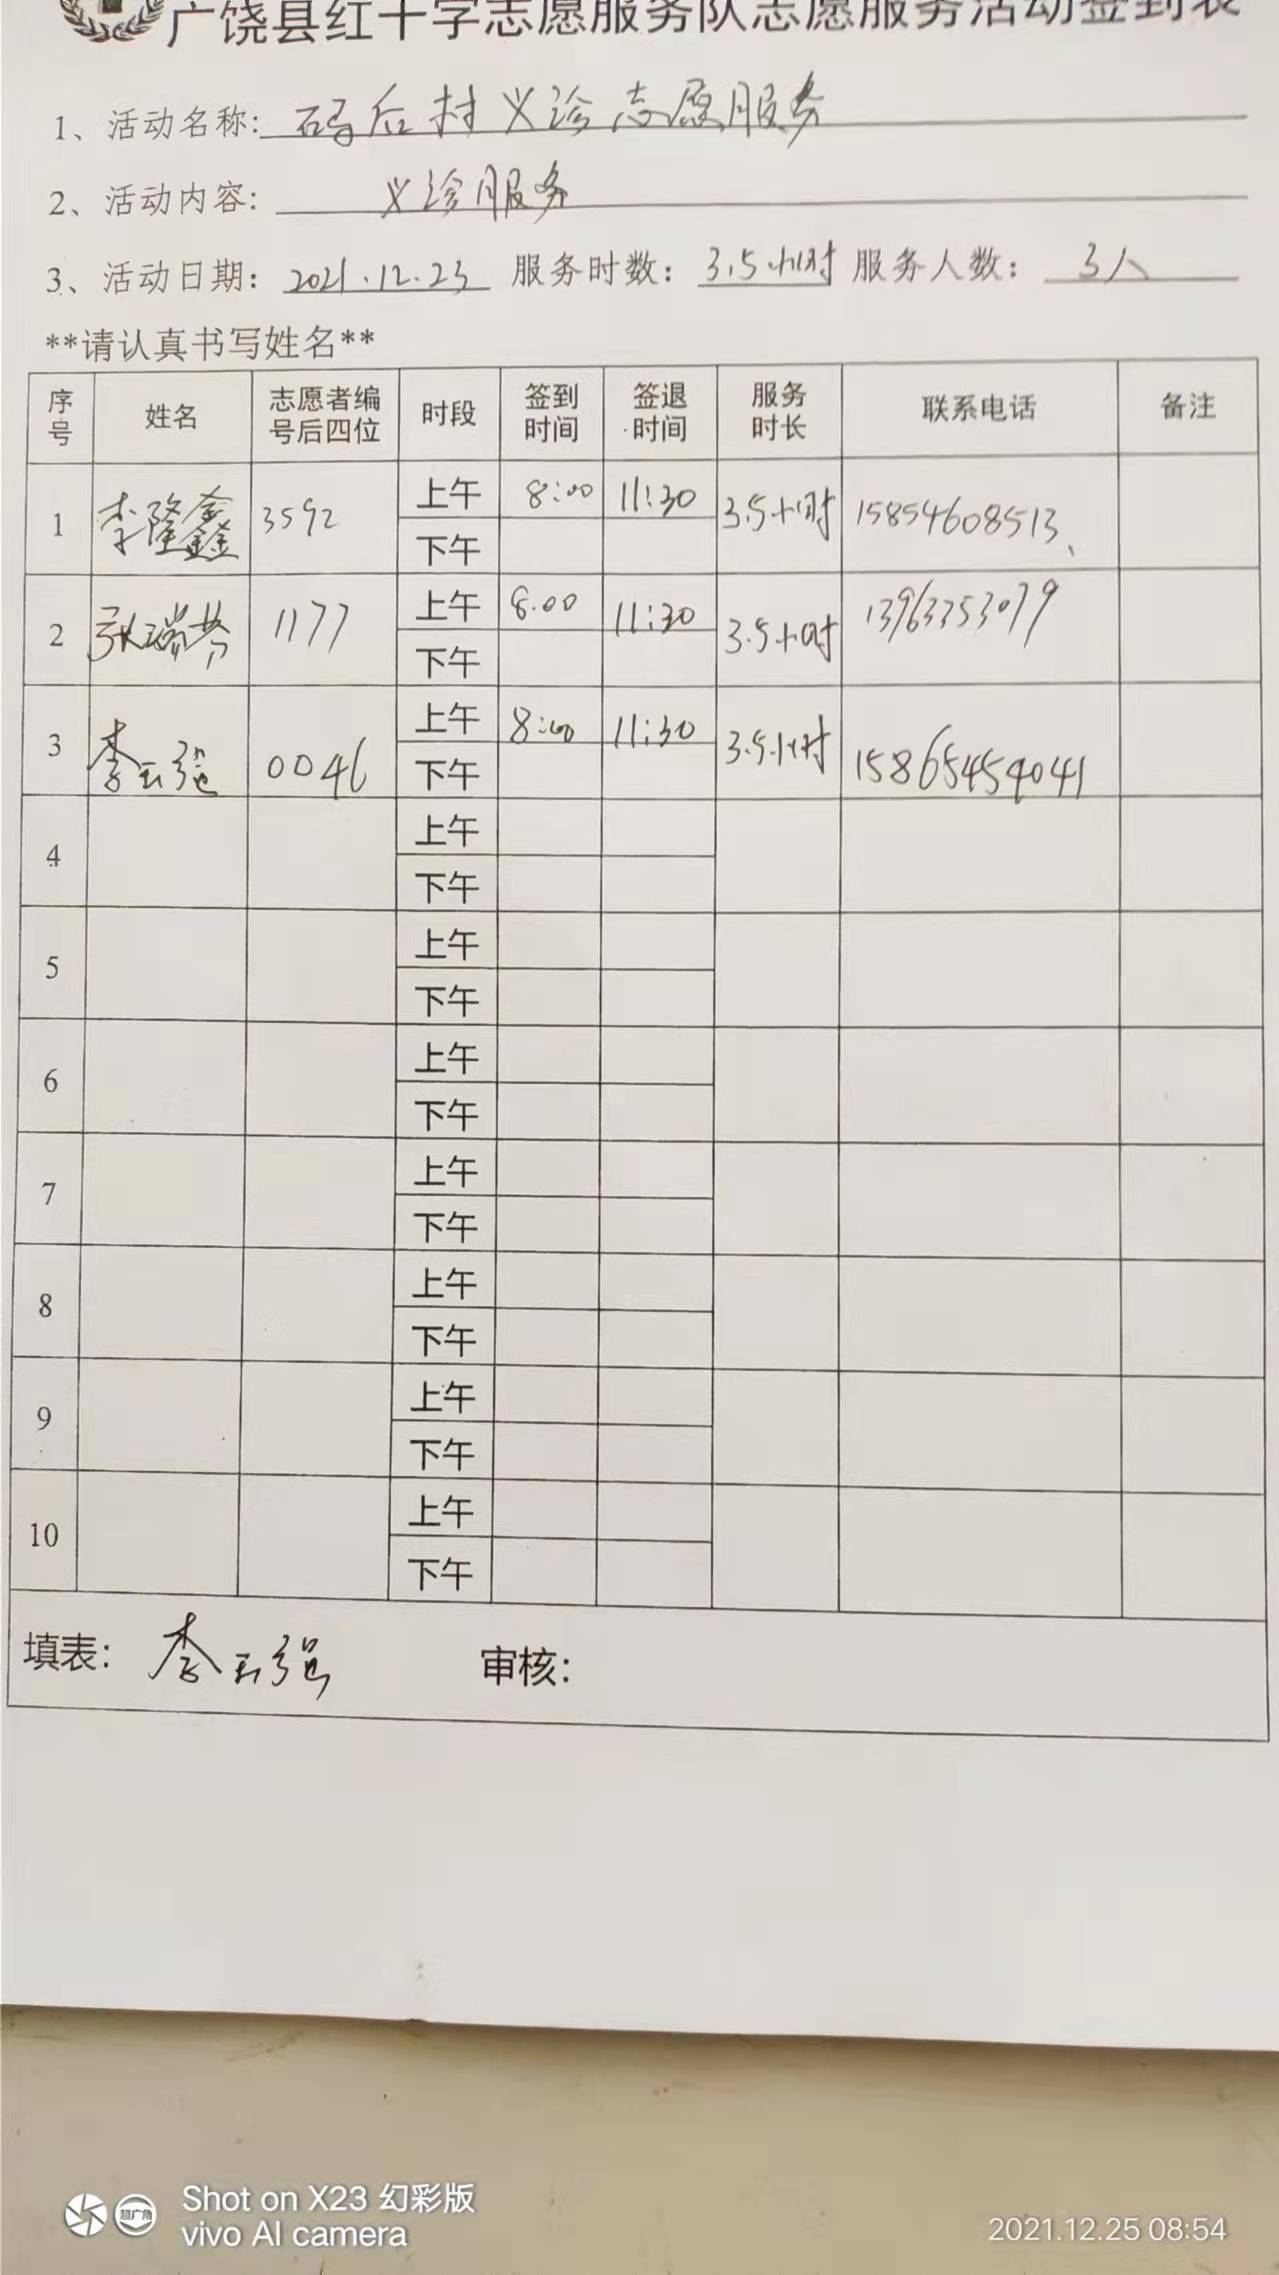 广饶县红十字志愿服务队志愿服务活动签到表
1、活动名称: 码后村义诊志愿服务
2、活动内容: 义诊服务
3、活动日期: 2021.12.23 服务时数: 3.5小时 服务人数: 3人
**请认真书写姓名**
序号 姓名 志愿者编号后四位 时段 签到时间 签退时间 服务时长 联系电话 备注
1 李隆鑫 3592 上午 8:00 11:30 3.5小时 15854608513、
下午
2 张瑞芬 1177 上午 8.00 11:30 3.5小时 13963353079
下午
3 李玉强 0046 上午 8:00 11:30 3.5小时 15865454041
下午
4 上午
下午
5 上午
下午
6 上午
下午
7 上午
下午
8 上午
下午
9 上午
下午
10 上午
下午
填表: 李玉强 审核:
超广角
Shot on X23 幻彩版
vivo AI camera
2021.12.25 08:54